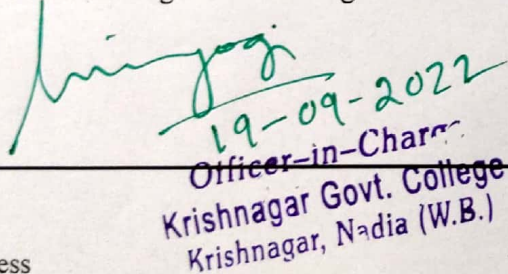 19-09-2022
Officer-in-Charge
Krishnagar Govt. College
Krishnagar, Nadia (W.B.)
ess